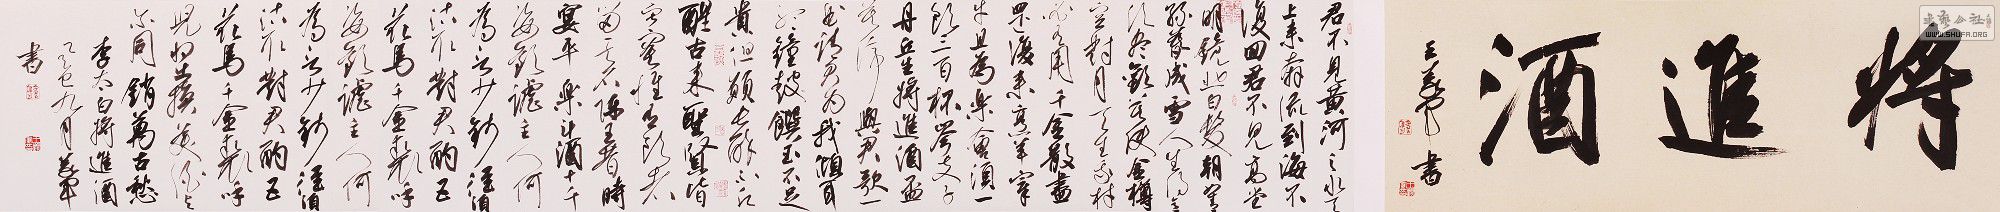 書藝公社
WWW.SHUFA.ORG
將進酒
書
君不見黃河之水天
上来奔流到海不
復回君不見高堂
明鏡悲白髮朝如青
絲暮成雪人生得意
須盡歡莫使金樽
空對月天生我材
必有用千金散盡
還復来烹羊宰
牛且為樂會須一
飲三百杯岑夫子
丹丘生將進酒杯
莫停與君歌一
曲請君為我傾耳
聽鐘鼓饌玉不足
貴但願長醉不
醒古来聖賢皆
寂寞惟有飲者
留其名陳王昔時
宴平樂斗酒十千
恣歡謔主人何
為言少錢徑須
沽取對君酌五
花馬千金裘呼
恣歡謔主人何
為言少錢徑須
沽取對君酌五
花馬千金裘呼
兒將出換美酒與
尔同銷萬古愁
李太白將進酒
乙巳九月
書